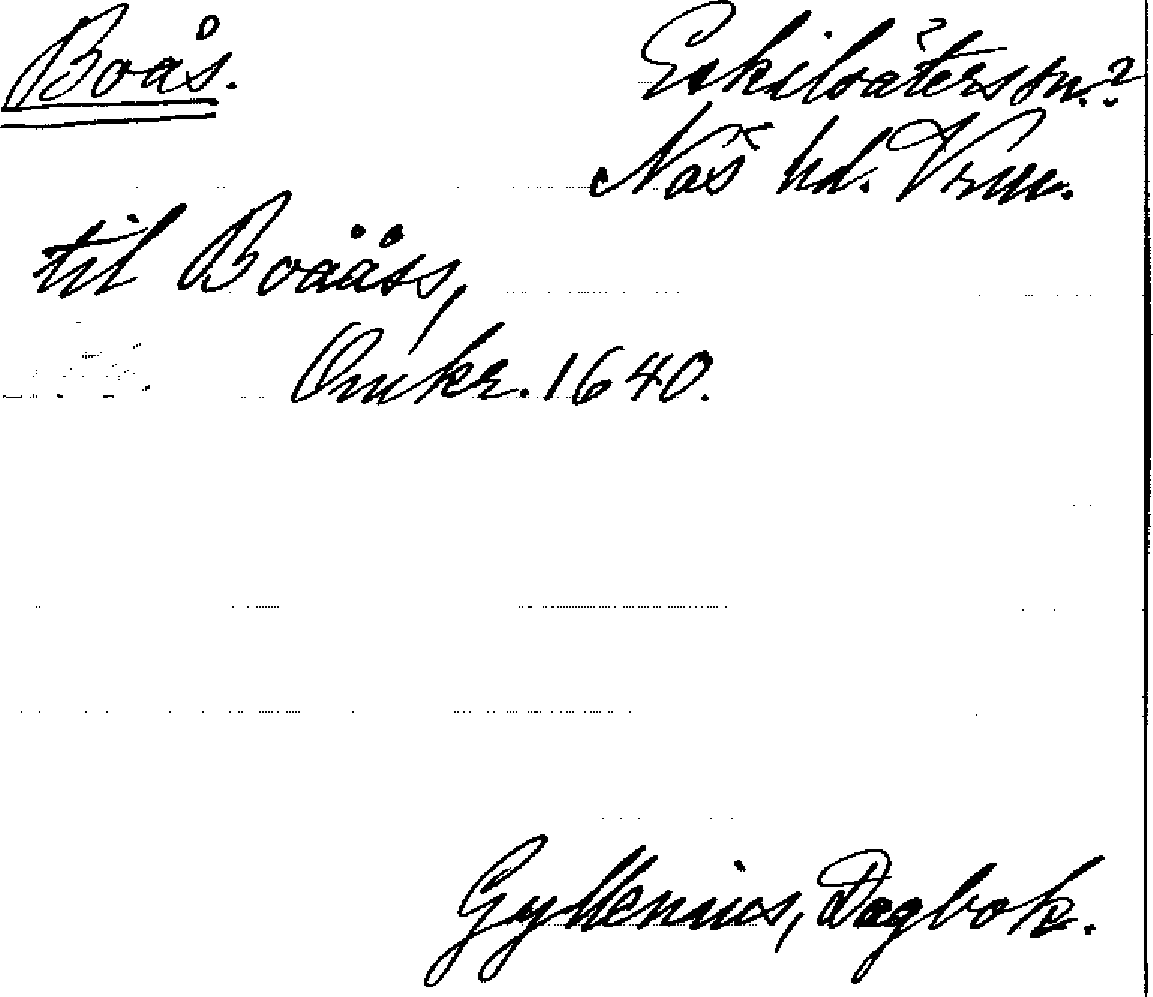 Boås.
Eskilsäters sn.?
Näs hd. Vrm.
til Boååss,
Omkr. 1640.
Gyllenius, Dagbok.